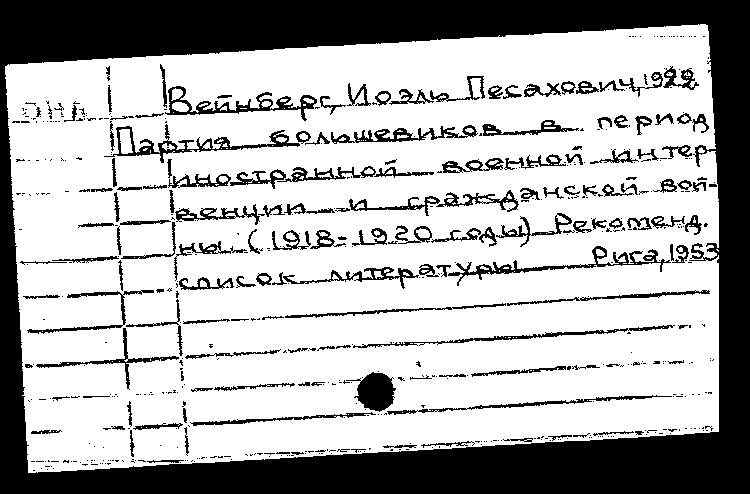 ОНА
Вейнберг, Иоэль Песахович, 1922
Партия большевиков в период
иностранной военной интер-
венции и гражданской вой-
ны (1918-1920 годы) Рекоменд.
список литературы Рига, 1953